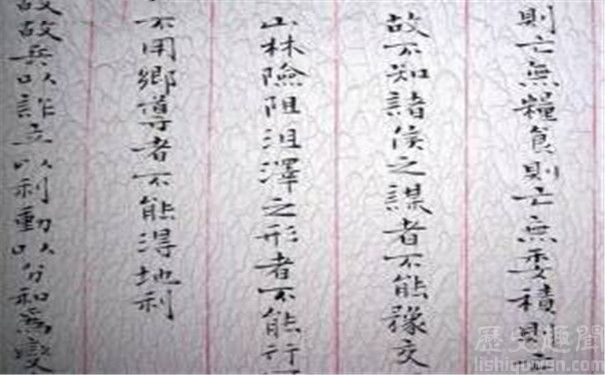 則亡無糧食則亡無委積則亡
故不知諸侯之謀者不能豫交
山林險阻沮澤之形者不能行
不用鄉導者不能得地利
故故兵以詐立以利動以分和為變
歷史趣聞
lishiquwen.com